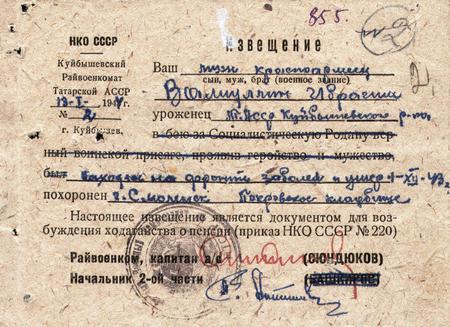 855
НКО СССР
Куйбышевский
Райвоенкомат
Татарской АССР
13-I- 1944
№ 2
г. Куйбышев,
Извещение
Ваш муж красноармеец
сын, муж, брат (военное звание)
Валиуллин Ибрагим
уроженец Т.АССР Куйбышевского р-на
в бою за Социалистическую Родину вер
ный воинской присяге, проявив геройство и мужество,
был находясь на фронте заболел и умер 1-XII-43
похоронен г. Смоленск Покровское кладбище
Настоящее извещение является документом для воз-
буждения ходатайства о пенсии (приказ НКО СССР № 220)
Райвоенком, капитан а/с (СЮНДЮКОВ)
Начальник 2-ой части